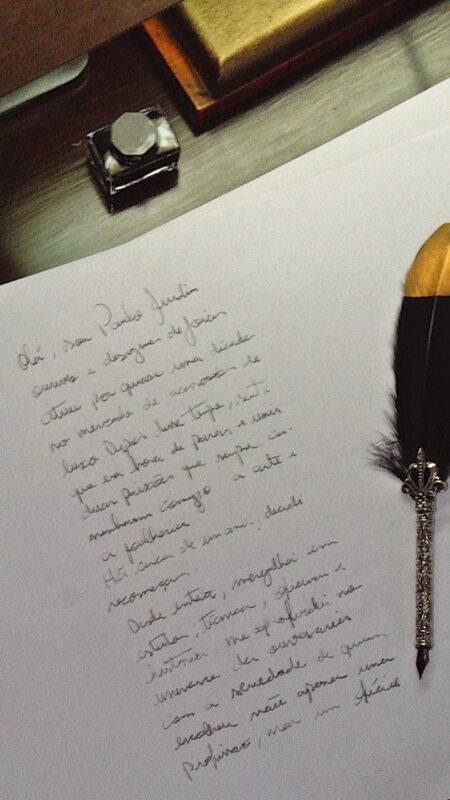 Olá, sou Paulo
ourives e designer de joias
atuei por quase uma década
no mercado de acessórios de
luxo Depois desse tempo, senti
que era hora de parar e unir
duas paixões que sempre ca-
minharam comigo a arte e
a joalheria
Há cerca de um ano, decidi
recomeçar.
Desde então, mergulhei em
estudos, técnicas, e
história me aprofundei no
universo da ourivesaria
com a seriedade de quem
escolheu não apenas uma
profissão, mas um ofício